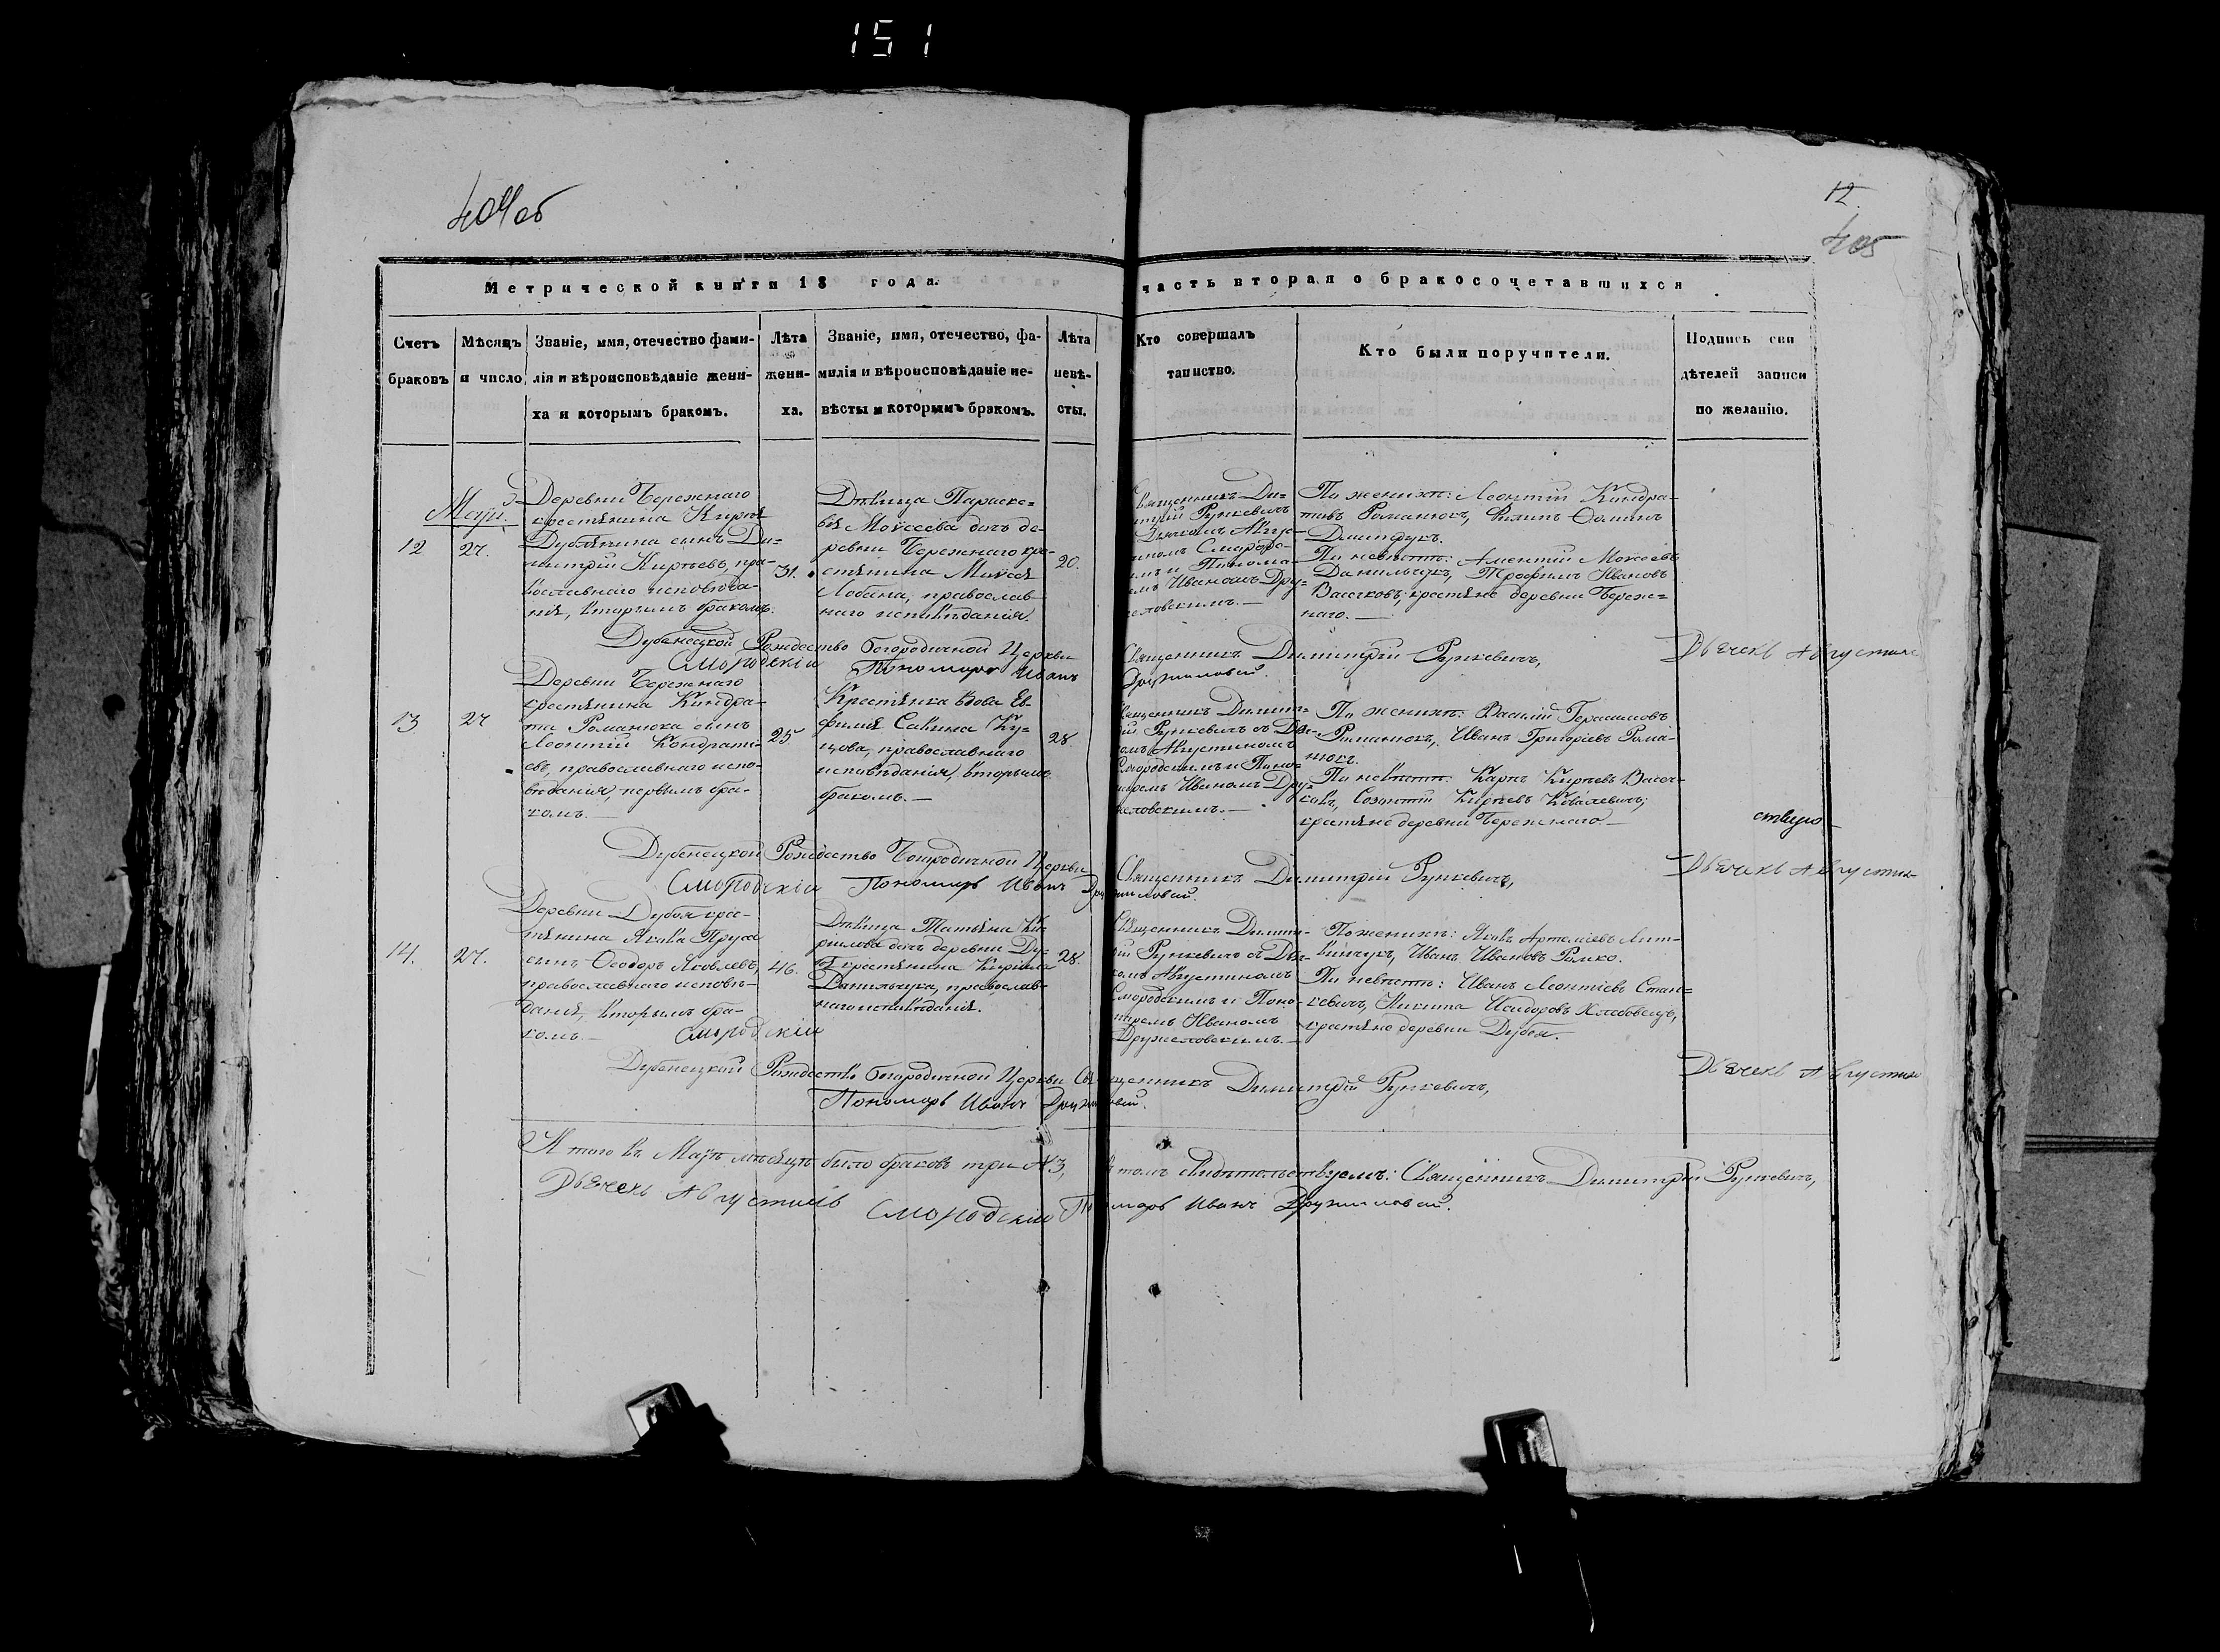 151
404об
12
405
Метрической книги 18 года.
часть вторая о бракосочетавшихся
Счетъ браковъ
Мѣсяцъ и число
Званіе, имя, отечество фами-
лія и вѣроисповѣданіе жени-
ха и которымъ бракомъ.
Лѣта
жени-
ха.
Званіе, имя, отечество, фа-
милія и вѣроисповѣданіе не-
вѣсты и которымъ бракомъ.
Лѣта
невѣ-
сты.
Кто совершалъ
таинство.
Кто были поручители.
Подпись сви
дѣтелей записи
по желанію.
Маія
12
27.
Деревни Бережнаго
крестьянина Кирея
Дубянина сынъ Ди=
митрій Киреевъ, пра-
вославнаго исповѣда-
нія, вторымъ бракомъ.
31.
Дѣвица Параске=
вія Моѵсеева дочь де-
ревни Бережнаго кре-
стьянина Моѵсея
Лобана, православ-
наго исповѣданія.
20.
Священникъ Ди=
митрій Рункевичъ
Дьячкомъ Авгус-
тиномъ Смородс-
кимъ и Понома-
ремъ Иваномъ Дру=
жиловскимъ.—
По женихѣ: Леонтій Кондра-
товъ Романюкъ, Филипъ Ѳоминъ
Дмитрукъ.
По невѣстѣ: Аментій Моѵсеевъ
Данильчукъ, Трофимъ Ивановъ
Васечковъ; крестьяне деревни Береж=
наго.—
Дубенецкой Рождество Богородичной Церкви Священникъ Димитрій Рункевичъ, Дьячекъ Августинъ
Смородскій Пономарь Иванъ Дружиловскій.
13
27
Деревни Бережнаго
крестьянина Кондра-
та Романюка сынъ
Леонтій Кондрати-
евъ, православнаго испо-
вѣданія, первымъ бра-
комъ.—
25.
Крестьянка вдова Ев-
фимія Савина Ку-
цова, православнаго
исповѣданія, вторымъ
бракомъ.—
28.
Священникъ Димит-
рій Рункевичъ съ Дья-
комъ Августиномъ
Смородскимъ и Поно-
маремъ Иваномъ Дру=
жиловскимъ.—
По женихѣ: Василій Герасимовъ
Романюкъ, Иванъ Григоріевъ Рома-
нюкъ.
По невѣстѣ: Карпъ Киреевъ Васеч-
ковъ, Киреевъ Ковалевичъ;
крестьяне деревни Бережнаго.—
Дубенецкой Рождество Богородичной Церкви Священникъ Димитрій Рункевичъ, Дьячекъ Августинъ
Смородскій Пономарь Иванъ Дружиловскій.
14.
27.
Деревни Дубоя крес-
тьянина Якова
сынъ Ѳеодоръ Яковлевъ,
православнаго исповѣ-
данія, вторымъ бра-
комъ.—
46.
Дѣвица Татьяна Ки-
рилова дочь деревни Ду-
боя крестьянина Кирилла
Данильчука, православ-
наго исповѣданія.
28.
Священникъ Димит-
рій Рункевичъ съ Дья-
комъ Августиномъ
Смородскимъ и Поно-
маремъ Иваномъ
Дружиловскимъ.—
По женихѣ: Яковъ Артеміевъ Лит-
винчукъ, Иванъ Ивановъ Ромко.
По невѣстѣ: Иванъ Леонтіевъ Стан=
кевичъ, Никита Исидоровъ Хлебовецъ,
крестьяне деревни Дубоя.
Смородскій
Дубенецкой Рождество Богородичной Церкви Священникъ Димитрій Рункевичъ, Дьячекъ Августинъ
Пономарь Иванъ Дружиловскій.
И того въ Маіѣ мѣсяцѣ было браковъ три №3, въ томъ свидѣтельствуемъ: Священникъ Димитрій Рункевичъ,
Дьячекъ Августинъ Смородскій Пономарь Иванъ Дружиловскій.